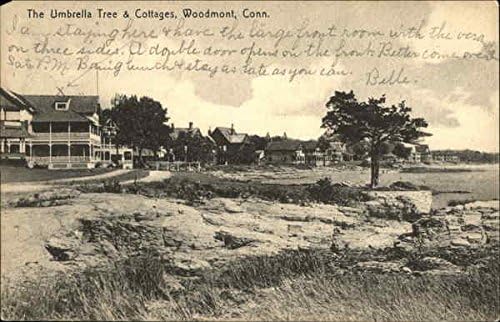 The Umbrella Tree & Cottages, Woodmont, Conn.
I am staying here & have the large front room with the vera
on three sides. A double door opens on the front. Better come over
Sat P.M. Bring lunch & stay as late as you can.
Belle.